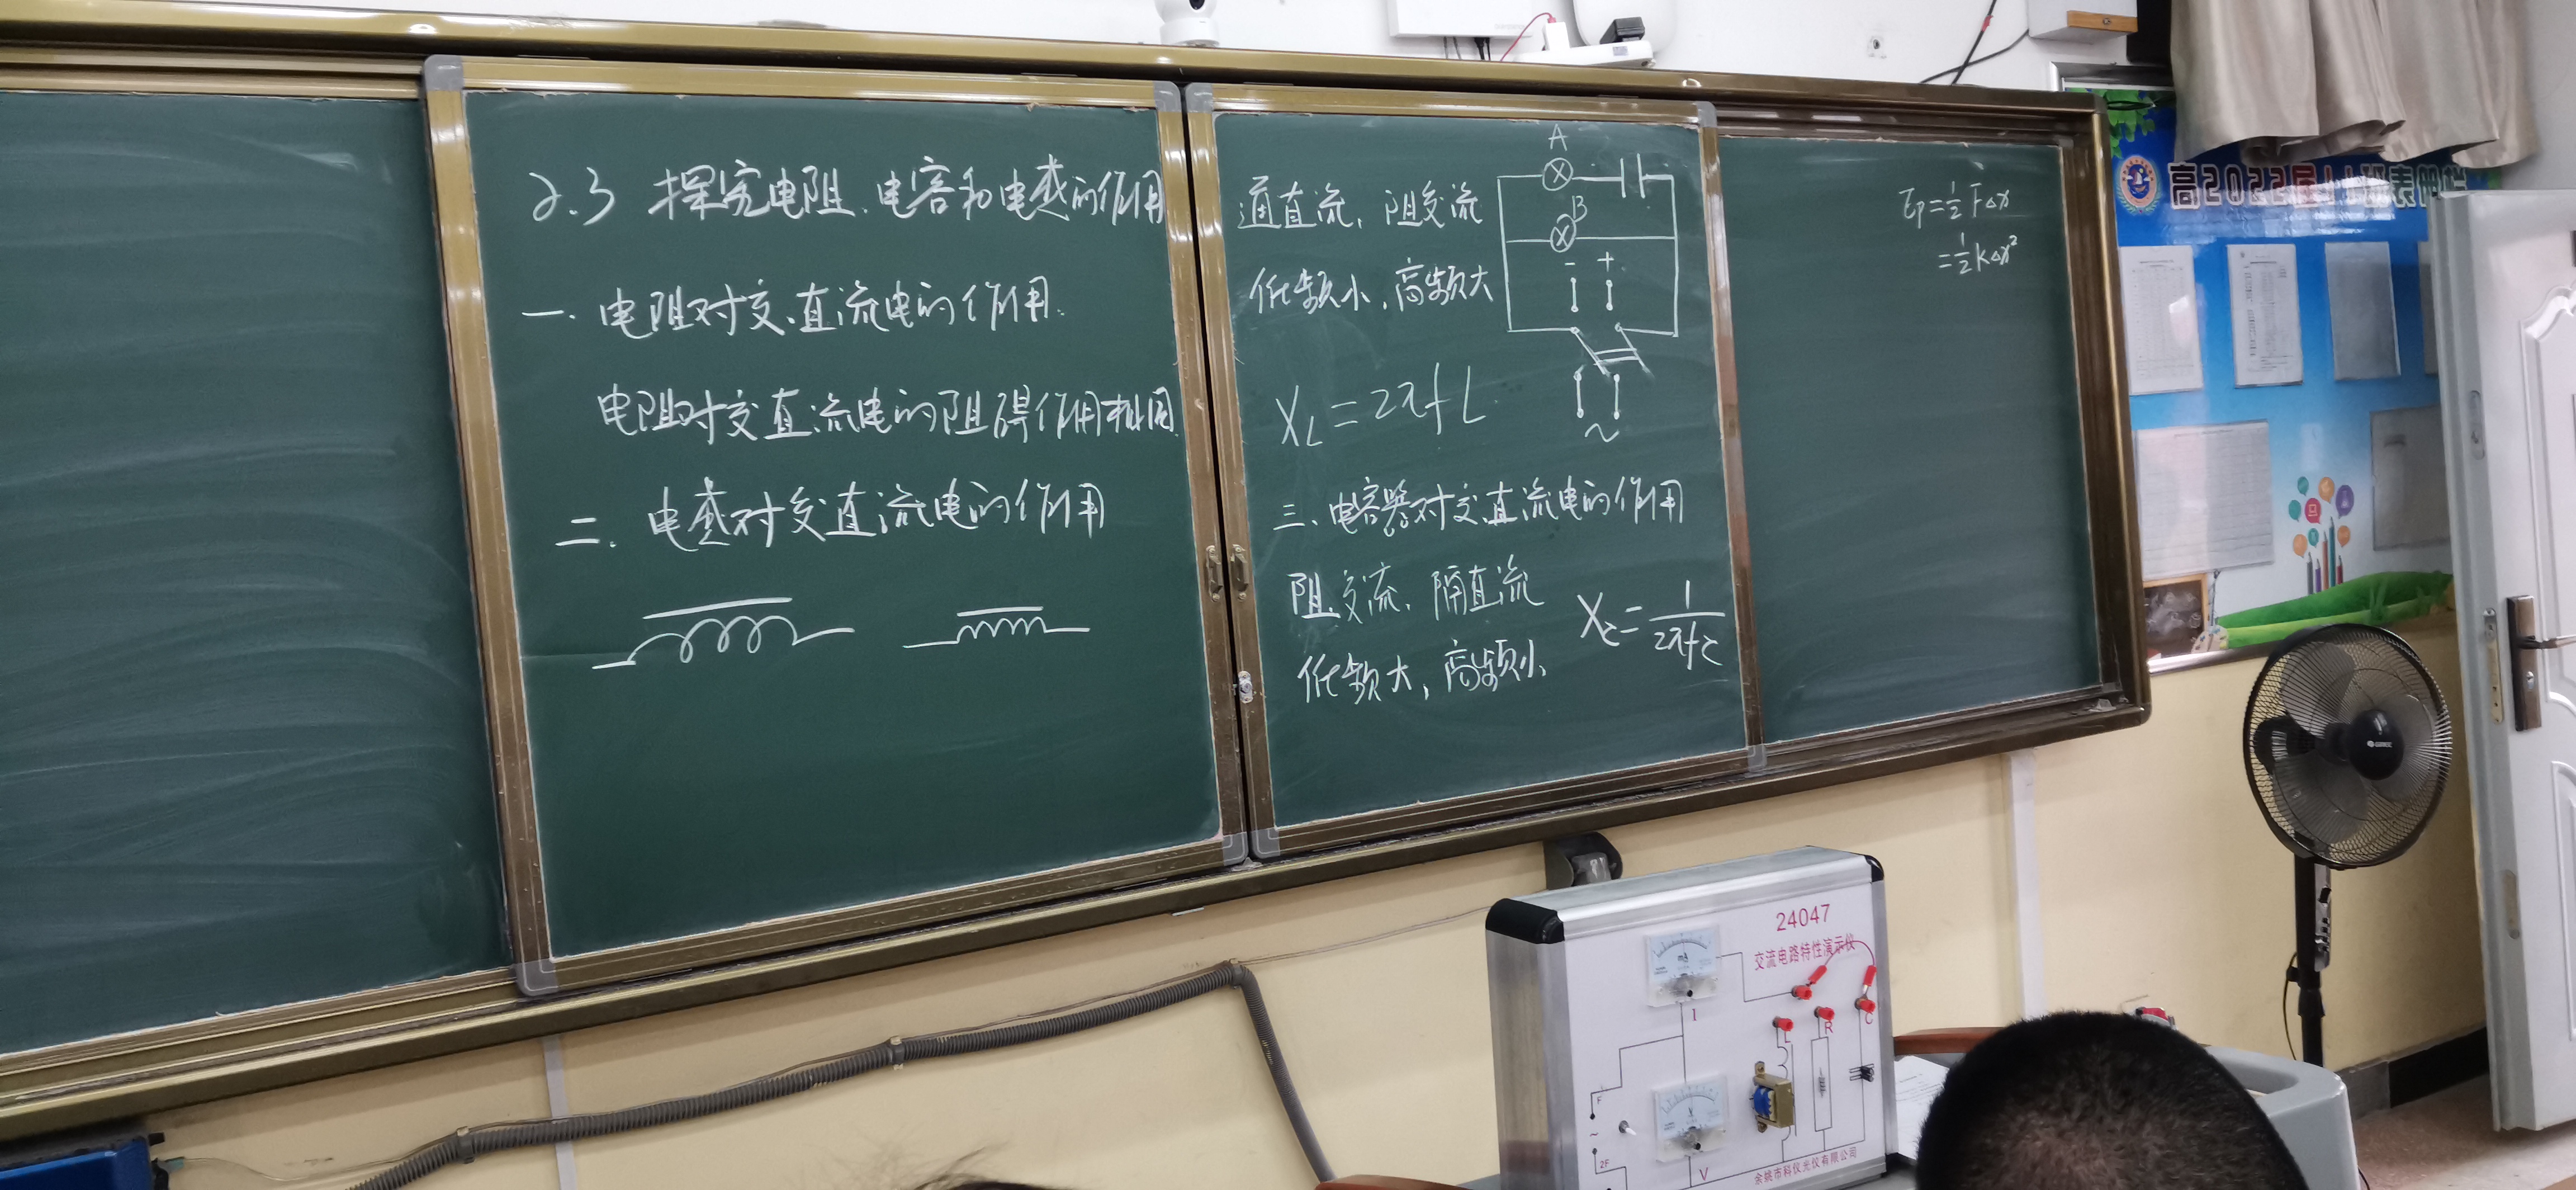 2.3 探究电阻、电容和电感的作用
一. 电阻对交、直流电的作用.
电阻对交直流电的阻碍作用相同.
二. 电感对交直流电的作用
通直流, 阻交流
低频小, 高频大
X_L = 2πfL
A
B
- +
~
三、电容器对交、直流电的作用
阻交流, 隔直流
低频大, 高频小
X_C = 1/2πfC
Ep = 1/2 FΔx
= 1/2 kΔx²
高2022届11班
24047
交流电路特性演示仪
mA
I
L
R
C
F
~
2F
V
V
余姚市科仪光仪有限公司
GREE